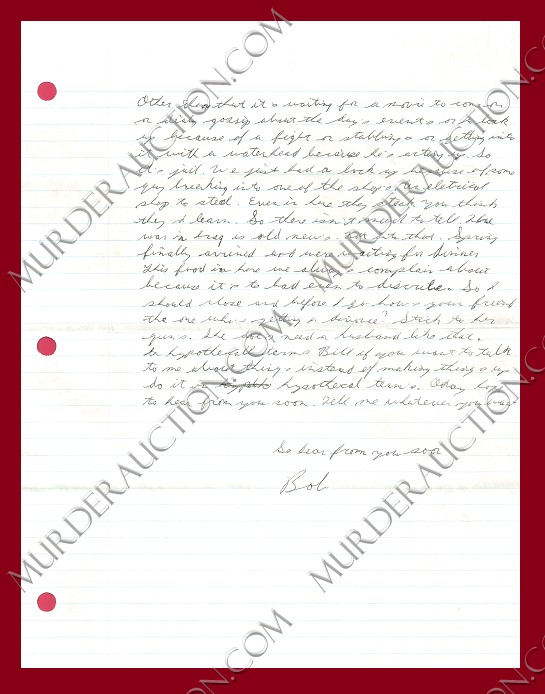 Other than that it's waiting for a movie to come on
or dialy gossip about the day's events or a lock
up because of a fight or stabbings or getting into
it with a waterhead because he's acting up. So
it's jail. We just had a lock up because of some
guy breaking into one of the shops an eletrical
shop to steal. Even in here they steal. You think
they'd learn. So there isn't much to tell. The
war in Iraq is old news. Spring
finally arrived and were waiting for dinner
this food in here we always complain about
because it's to bad even to discribe. So I
should close and before I go how's your friend
the one who's getting a divorce? Stick to her
guns. She don't need a husband like that.
In hypothetical terms Bill if you want to talk
to me about things instead of making things up
do it in hypothecal terms. Okay hope
to hear from you soon. Tell me whatever you want
So hear from you soon
Bob
MURDERAUCTION.COM
MURDERAUCTION.COM
MURDERAUCTION.COM
MURDERAUCTION.COM
MURDERAUCTION.COM
MURDERAUCTION.COM